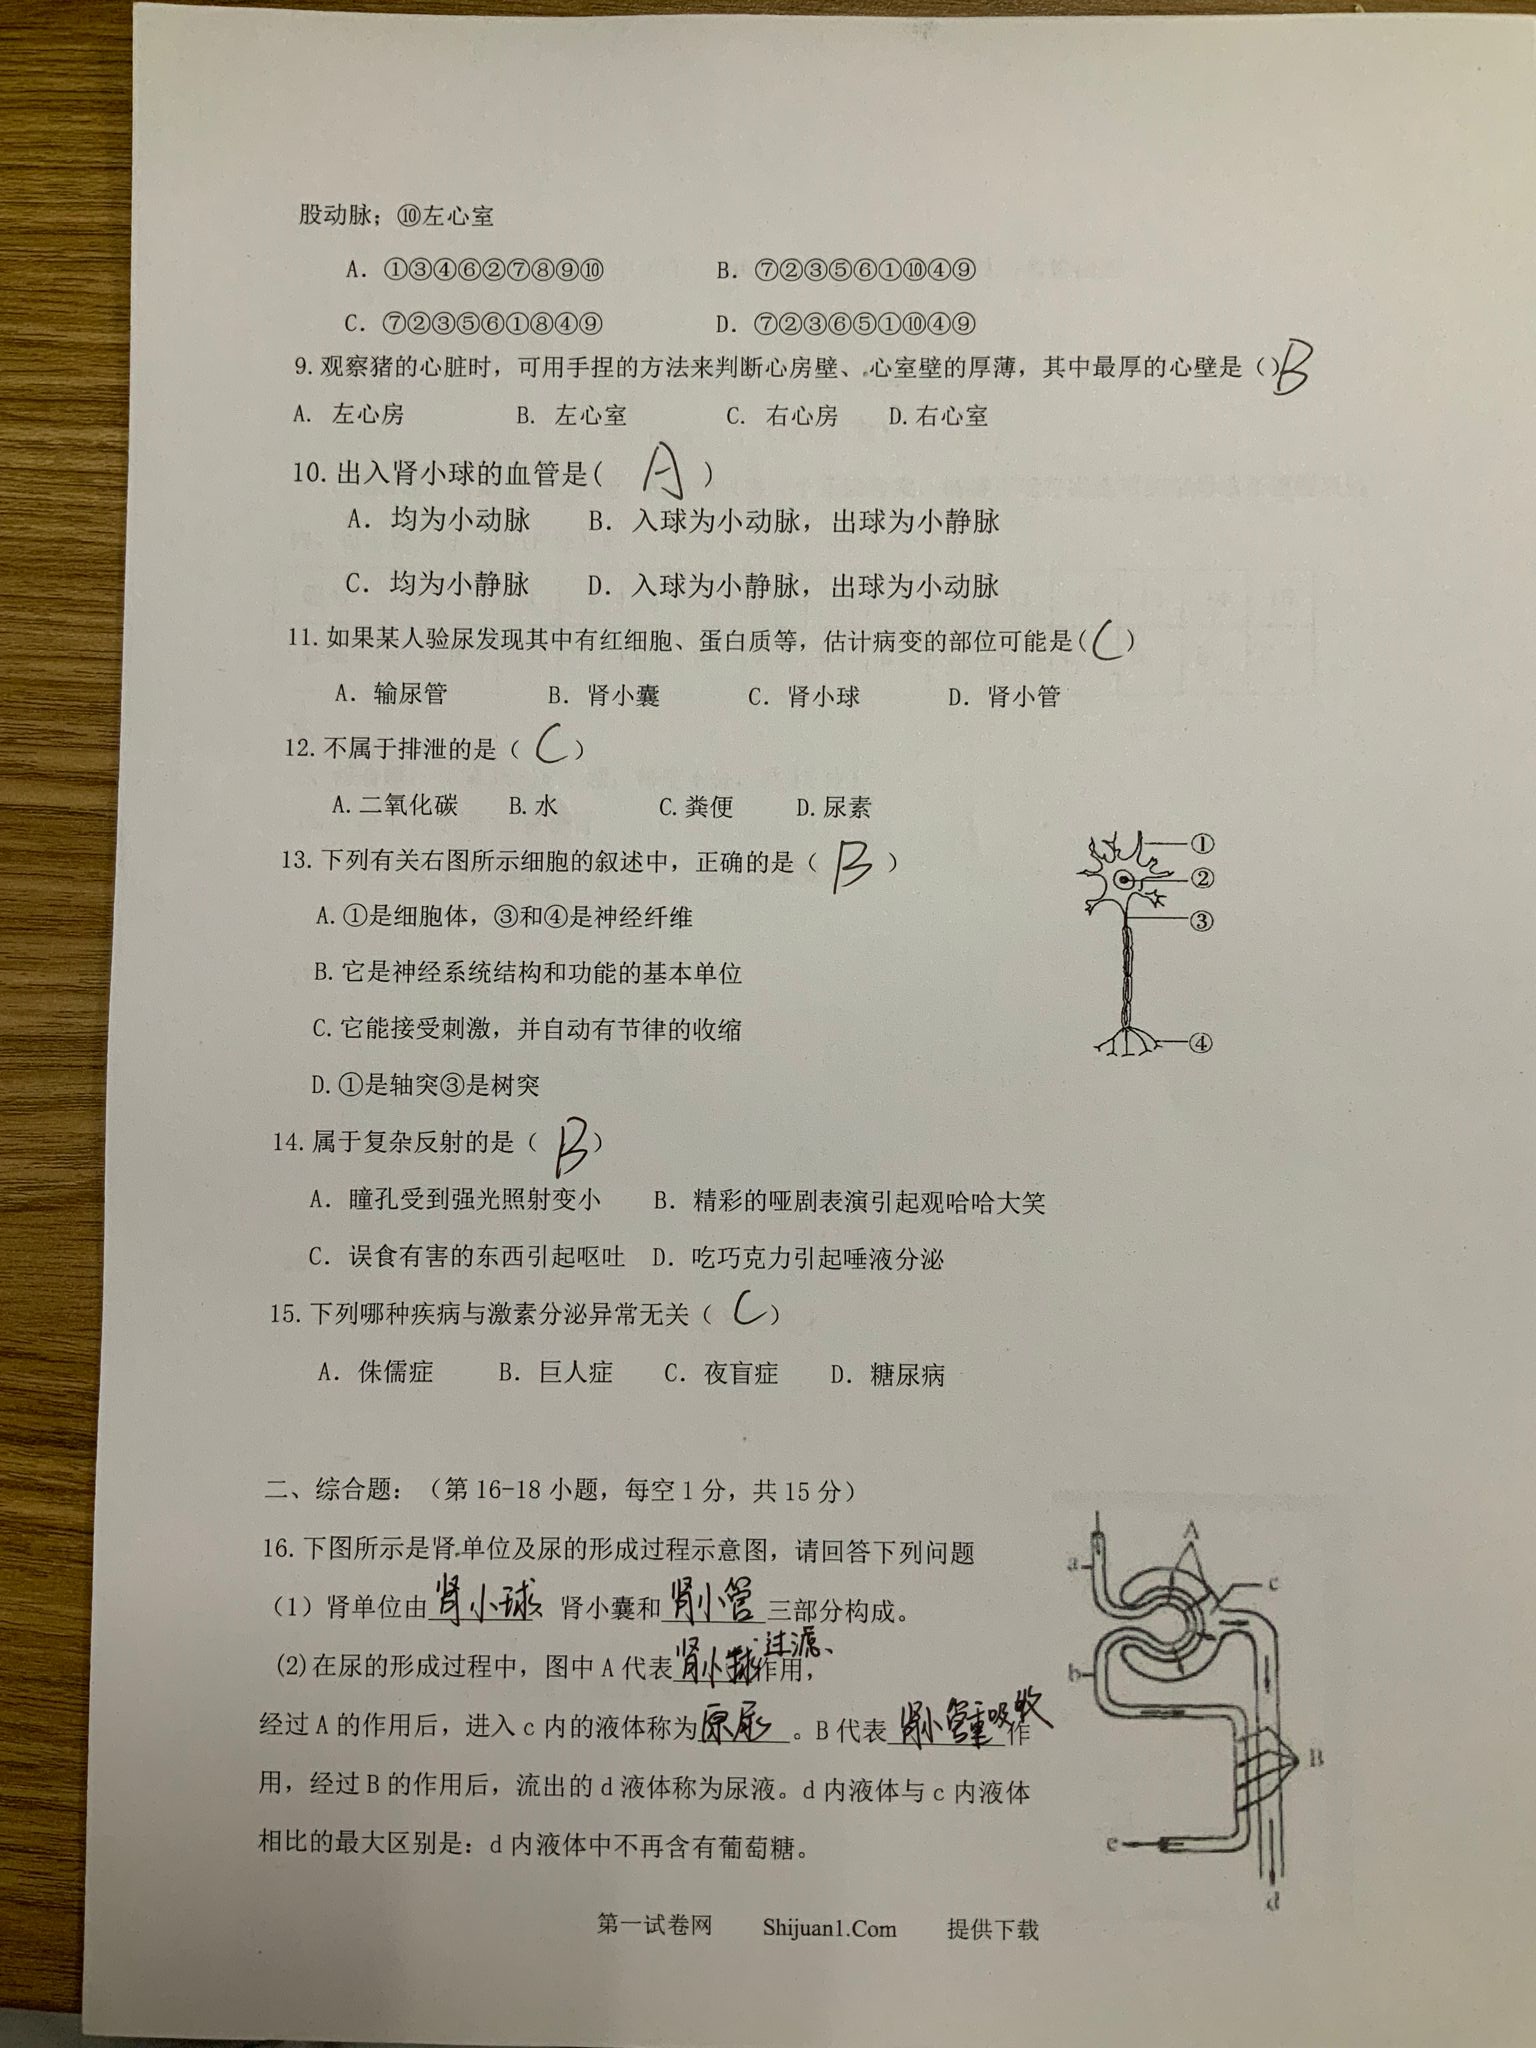 股动脉；⑩左心室
A．①③④⑥②⑦⑧⑨⑩ B．⑦②③⑤⑥①⑩④⑨
C．⑦②③⑤⑥①⑧④⑨ D．⑦②③⑥⑤①⑩④⑨
9.观察猪的心脏时，可用手捏的方法来判断心房壁、心室壁的厚薄，其中最厚的心壁是（）B
A. 左心房 B. 左心室 C. 右心房 D.右心室
10.出入肾小球的血管是( A )
A．均为小动脉 B．入球为小动脉，出球为小静脉
C．均为小静脉 D．入球为小静脉，出球为小动脉
11.如果某人验尿发现其中有红细胞、蛋白质等，估计病变的部位可能是( C )
A．输尿管 B．肾小囊 C．肾小球 D．肾小管
12.不属于排泄的是（ C ）
A.二氧化碳 B.水 C.粪便 D.尿素
13.下列有关右图所示细胞的叙述中，正确的是（ B ）
①
②
③
④
A.①是细胞体，③和④是神经纤维
B.它是神经系统结构和功能的基本单位
C.它能接受刺激，并自动有节律的收缩
D.①是轴突③是树突
14.属于复杂反射的是（ B ）
A．瞳孔受到强光照射变小 B．精彩的哑剧表演引起观哈哈大笑
C．误食有害的东西引起呕吐 D．吃巧克力引起唾液分泌
15.下列哪种疾病与激素分泌异常无关（ C ）
A．侏儒症 B．巨人症 C．夜盲症 D．糖尿病
二、综合题：（第16-18小题，每空1分，共15分）
16.下图所示是肾单位及尿的形成过程示意图，请回答下列问题
（1）肾单位由肾小球、肾小囊和肾小管三部分构成。
(2)在尿的形成过程中，图中A代表肾小球过滤作用，
经过A的作用后，进入c内的液体称为原尿。B代表肾小管重吸收作
用，经过B的作用后，流出的d液体称为尿液。d内液体与c内液体
相比的最大区别是：d内液体中不再含有葡萄糖。
A
a
c
b
B
e
d
第一试卷网 Shijuan1.Com 提供下载